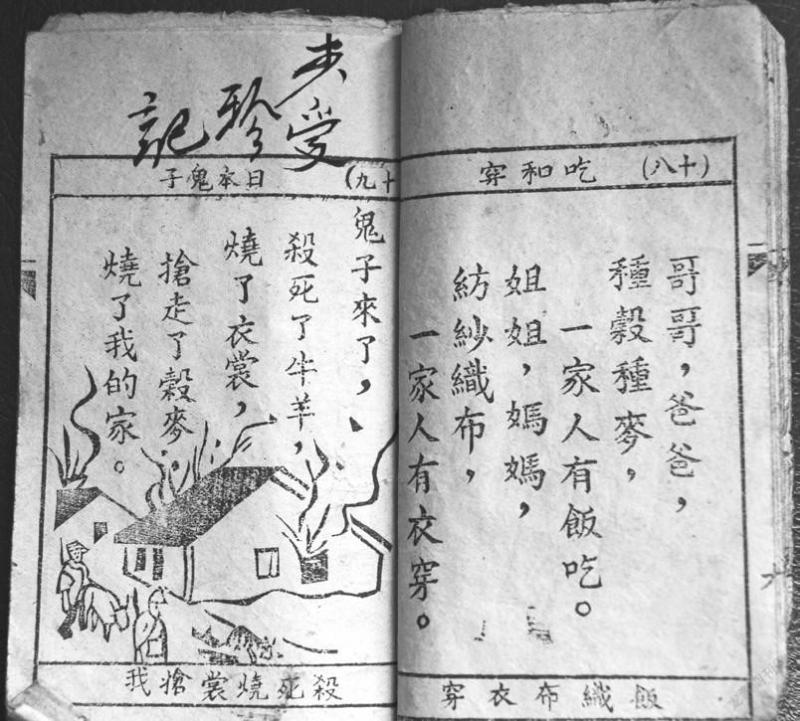 (十八) 吃和穿
哥哥，爸爸，
種穀種麥，
一家人有飯吃。
姐姐，媽媽，
紡紗織布，
一家人有衣穿。
飯織布衣穿
受珍記
(十九) 日本鬼子
鬼子來了，
殺死了牛羊，
燒了衣裳，
搶走了穀麥，
燒了我的家。
殺死燒裳搶我